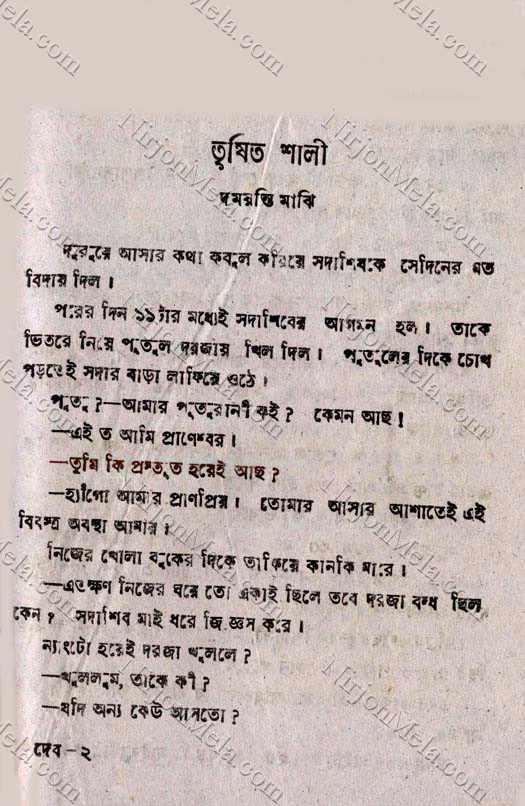 তৃষিত শালী
দময়ন্তি মাঝি
দুপুরে আসার কথা কবুল করিয়ে সদাশিবকে সেদিনের মত
বিদায় দিল।
পরের দিন ১১টার মধ্যেই সদাশিবের আগমন হল। তাকে
ভিতরে নিয়ে পুতুল দরজায় খিল দিল। পুতুলের দিকে চোখ
পড়তেই সদার বাড়া লাফিয়ে ওঠে।
পুতু?—আমার পুতুরানী কই? কেমন আছ!
—এই ত আমি প্রাণেশ্বর।
—তুমি কি প্রস্তুত হয়েই আছ?
—হ্যাঁগো আমার প্রাণপ্রিয়। তোমার আসার আশাতেই এই
বিবস্ত্র অবস্থা আমার।
নিজের খোলা বুকের দিকে তাকিয়ে কানকি মারে।
—এতক্ষণ নিজের ঘরে তো একাই ছিলে তবে দরজা বন্ধ ছিল
কেন? সদাশিব মাই ধরে জিজ্ঞেস করে।
ন্যাংটো হয়েই দরজা খুললে?
—খুললুম, তাকে কী?
—যদি অন্য কেউ আসতো?
দেব—২
NirjonMela.com